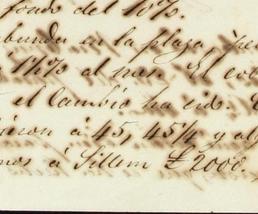 fondo del 10%.
abunda en la plaza
1½% al mes. El
el Cambio ha sido
á 45, 45¼ y
á Sillem £2000.